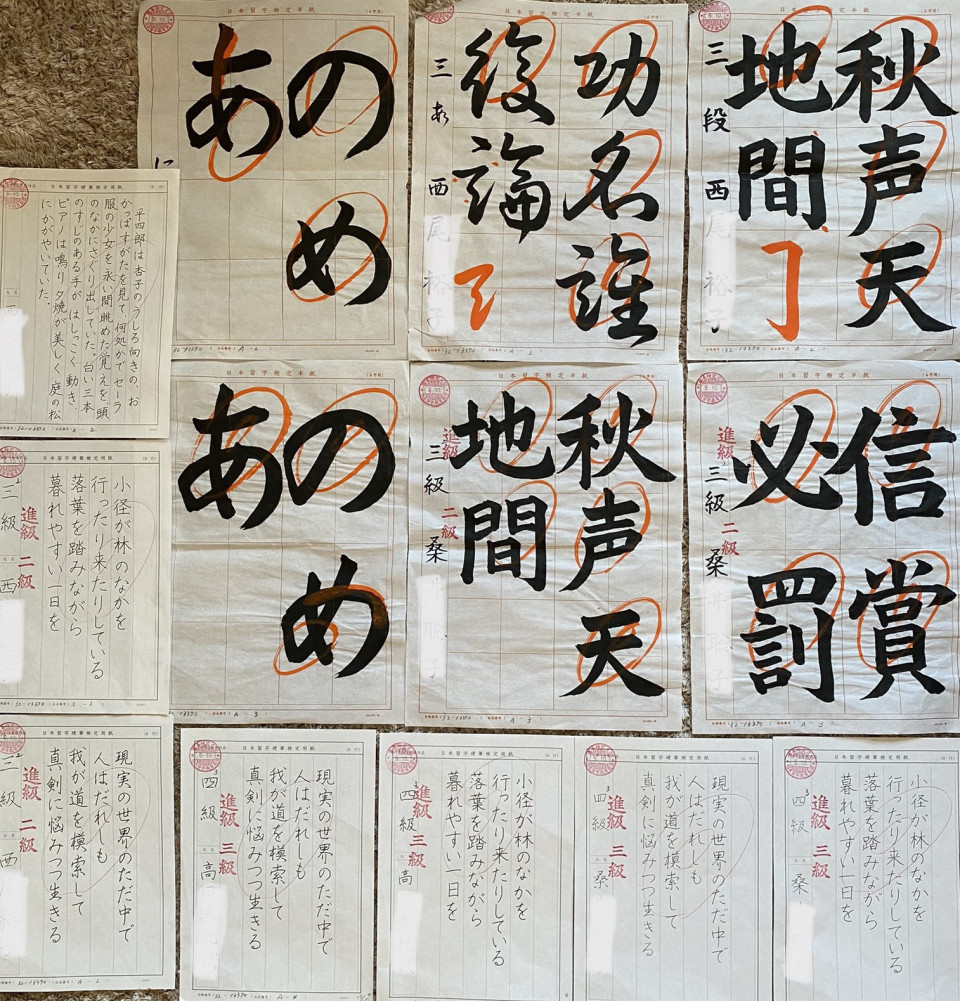 日本習字検定半紙
のめ
あ
日本習字検定半紙
功名誰
復論
三
西
日本習字検定半紙
秋声天
地間
三段 西
日本習字硬筆検定用紙
平四郎は杏子のうしろ向きの、お
かっぱすがたを見て、何処かでセーラ
服の少女を永い間眺めた覚えを頭
のなかにさぐり出していた。白い三本
のすじのある手がはしっこく動き、
ピアノは鳴り夕焼が美しく庭の松
にかがやいていた。
日本習字検定半紙
のめ
あ
日本習字検定半紙
秋声天
地間
進級 二級
三級 桑
日本習字検定半紙
信賞
必罰
進級 二級
三級 桑
日本習字硬筆検定用紙
小径が林のなかを
行ったり来たりしている
落葉を踏みながら
暮れやすい一日を
進級 二級
三級 西
日本習字硬筆検定用紙
現実の世界のただ中で
人はだれしも
我が道を模索して
真剣に悩みつつ生きる
進級 二級
三級 西
日本習字硬筆検定用紙
現実の世界のただ中で
人はだれしも
我が道を模索して
真剣に悩みつつ生きる
進級 三級
四級 高
日本習字硬筆検定用紙
小径が林のなかを
行ったり来たりしている
落葉を踏みながら
暮れやすい一日を
進級 三級
四級 高
日本習字硬筆検定用紙
現実の世界のただ中で
人はだれしも
我が道を模索して
真剣に悩みつつ生きる
進級 三級
四級 桑
日本習字硬筆検定用紙
小径が林のなかを
行ったり来たりしている
落葉を踏みながら
暮れやすい一日を
進級 三級
四級 桑